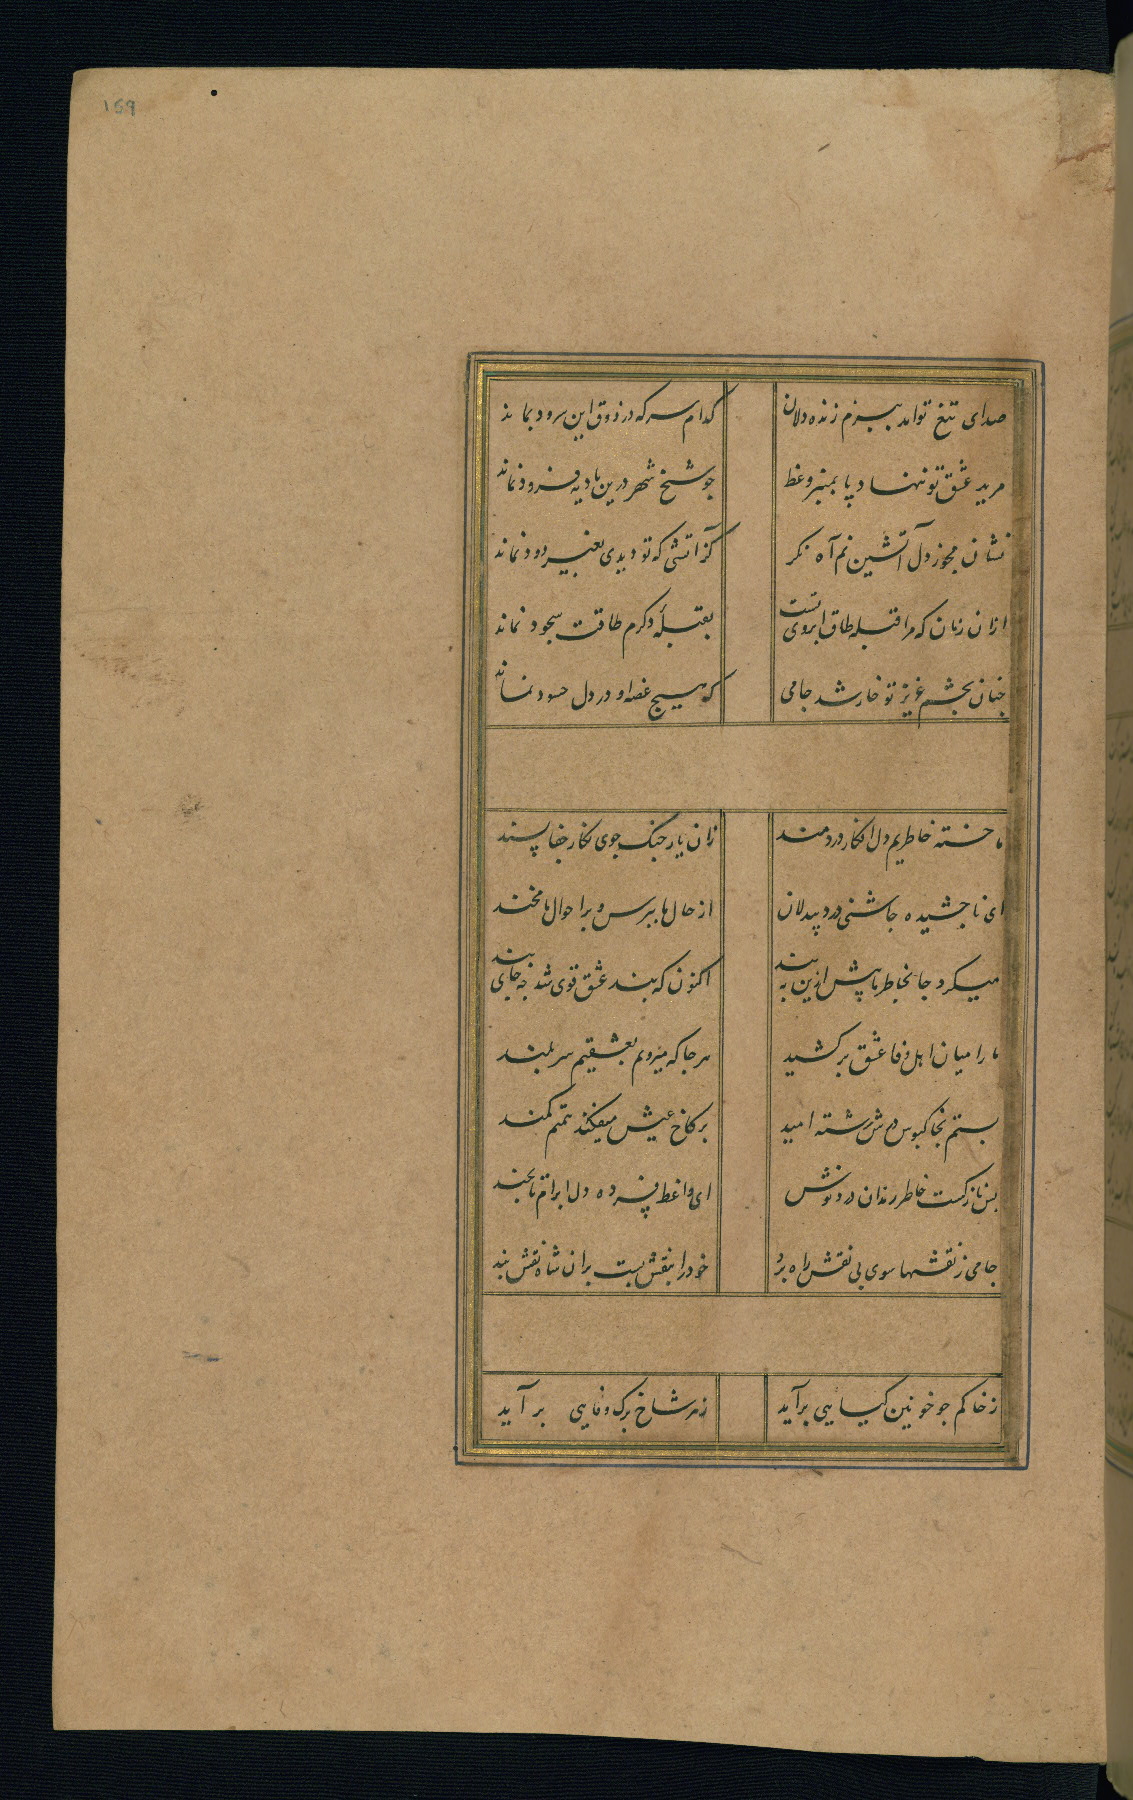 159
صدای تیغ تو آمد ببزم زنده دلان
کدام سر که در ذوق این سرود نماند
مرید عشق تو ننهاد پا بمنبر وعظ
چو شیخ شهر درین بادیه فرود نماند
نشان مجوز دل آتشین نم آه نکر
کز آتشی که تو دیدی بغیر دود نماند
ازان زمان که مرا قبله طاق ابروی تست
بقبلهٔ دکرم طاقت سجود نماند
چنان بچشم عزیز تو خار شد جامی
که هیچ غصه او در دل حسود نماند
ما خسته خاطریم دل افکار دردمند
زان یار جنک جوی نکار جفا پسند
ای ناچشیده چاشنی درد بیدلان
از حال ما بپرس و بر احوال ما مخند
میکرد جا بخاطر ما پیش ازین پند
اکنون که بند عشق قوی شد چه جای پند
ما را میان اهل وفا عشق برکشید
هر جا که میرویم بعشقیم سر بلند
بستم بخاکبوس درش رشته امید
بر کاخ عیش میفکند همتم کمند
بس نازکست خاطر رندان دردنوش
ای واعظ فسرده دل ابرام تا بچند
جامی ز نقشها سوی بی نقش راه برد
خود را بنقش بست بران شاه نقش بند
ز خاکم چو خونین کیایی برآید
ز هر شاخ برک وفایی برآید